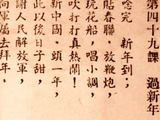 第四十九課　過新年
唸完　新年到；
貼春聯，放鞭炮，
玩花船，唱小調，
吹打打真熱鬧！
新中國・頭一年，
此以後日子甜，
謝人民解放軍，
向軍屬去拜年，